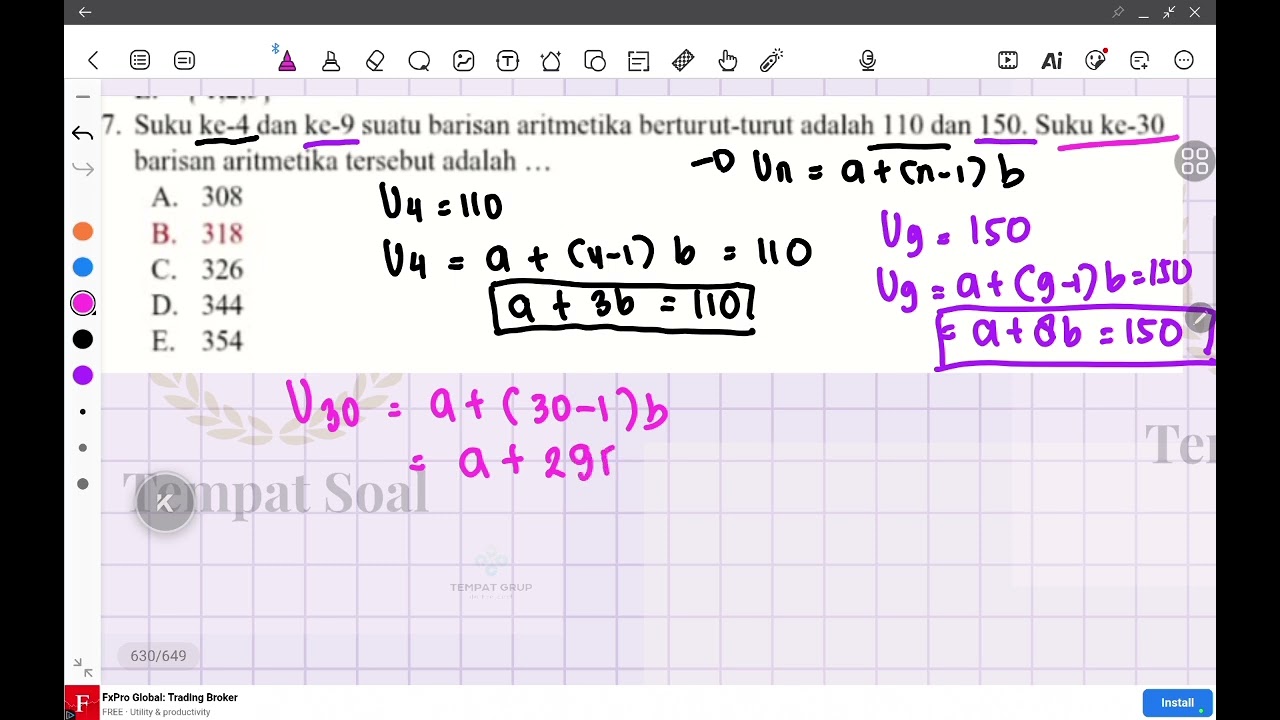 Ai
7. Suku ke-4 dan ke-9 suatu barisan aritmetika berturut-turut adalah 110 dan 150. Suku ke-30
barisan aritmetika tersebut adalah ...
A. 308
B. 318
C. 326
D. 344
E. 354
→ Un = a + (n-1) b
U4 = 110
U4 = a + (4-1) b = 110
a + 3b = 110
U9 = 150
U9 = a + (9-1) b = 150
= a + 8b = 150
U30 = a + (30-1) b
= a + 29
Tempat Soal
K
TEMPAT GRUP
630/649
F
FxPro Global: Trading Broker
FREE · Utility & productivity
Install